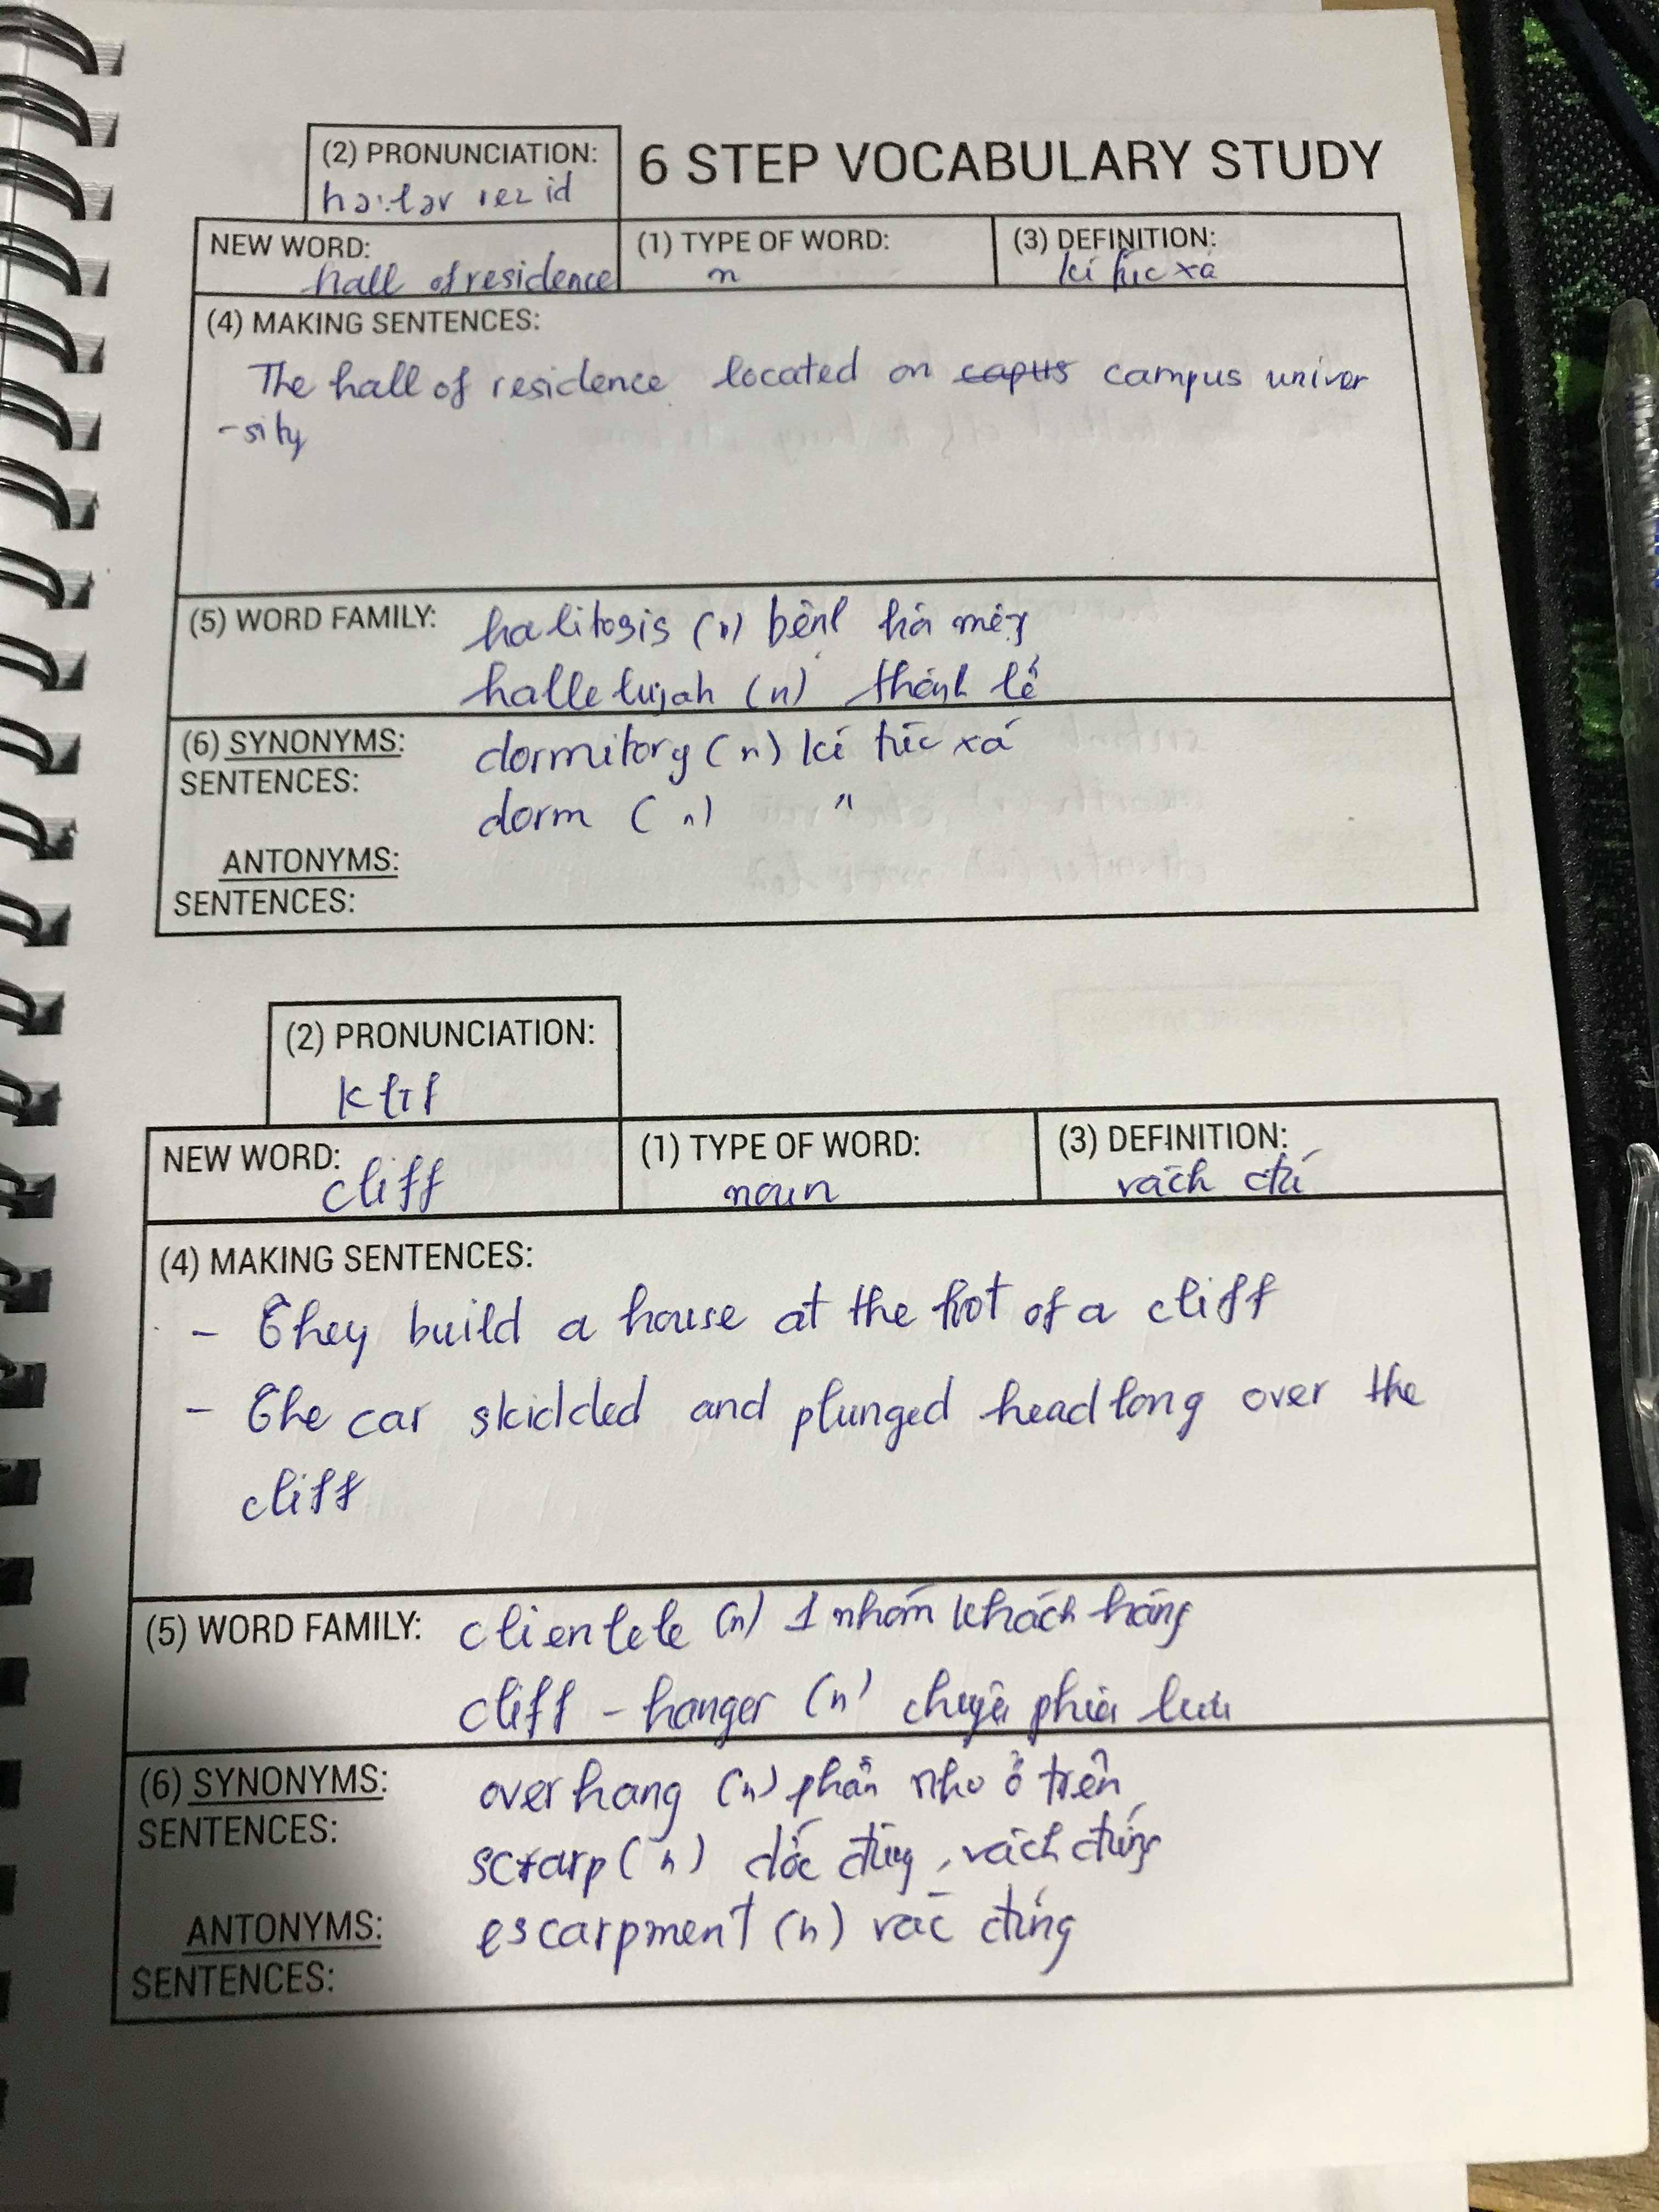 (2) PRONUNCIATION:
6 STEP VOCABULARY STUDY
NEW WORD: hall of residence
(1) TYPE OF WORD: n
(3) DEFINITION: kí túc xá
(4) MAKING SENTENCES:
The hall of residence located on capus campus univer
-sity
(5) WORD FAMILY: halitosis (n) bênh hôi
hallelujah (n)
(6) SYNONYMS: dormitory (n) kí túc xá
SENTENCES: dorm (n) "
ANTONYMS:
SENTENCES:
(2) PRONUNCIATION:
klɪf
NEW WORD: cliff
(1) TYPE OF WORD: noun
(3) DEFINITION: vách đá
(4) MAKING SENTENCES:
- They build a house at the foot of a cliff
- The car skidded and plunged headlong over the
cliff
(5) WORD FAMILY: clientele (n) 1 nhóm khách hàng
cliff - hanger (n) phiêu lưu
(6) SYNONYMS: overhang (n) phần nhô ở trên
SENTENCES: (n) dốc đứng, vách đứng
ANTONYMS: escarpment (n) vác đứng
SENTENCES: